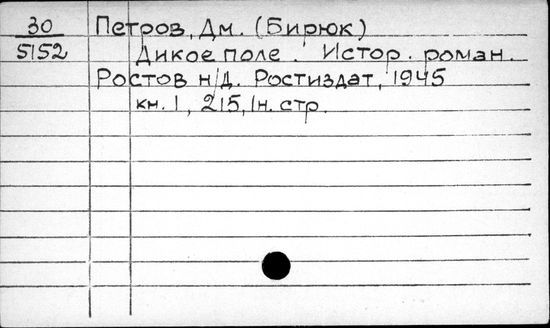 30 Петров, Дм. (Бирюк)
5152 Дикое поле. Истор. роман.
Ростов н/Д. Ростиздат, 1945
кн. 1, 215, 1н. стр.